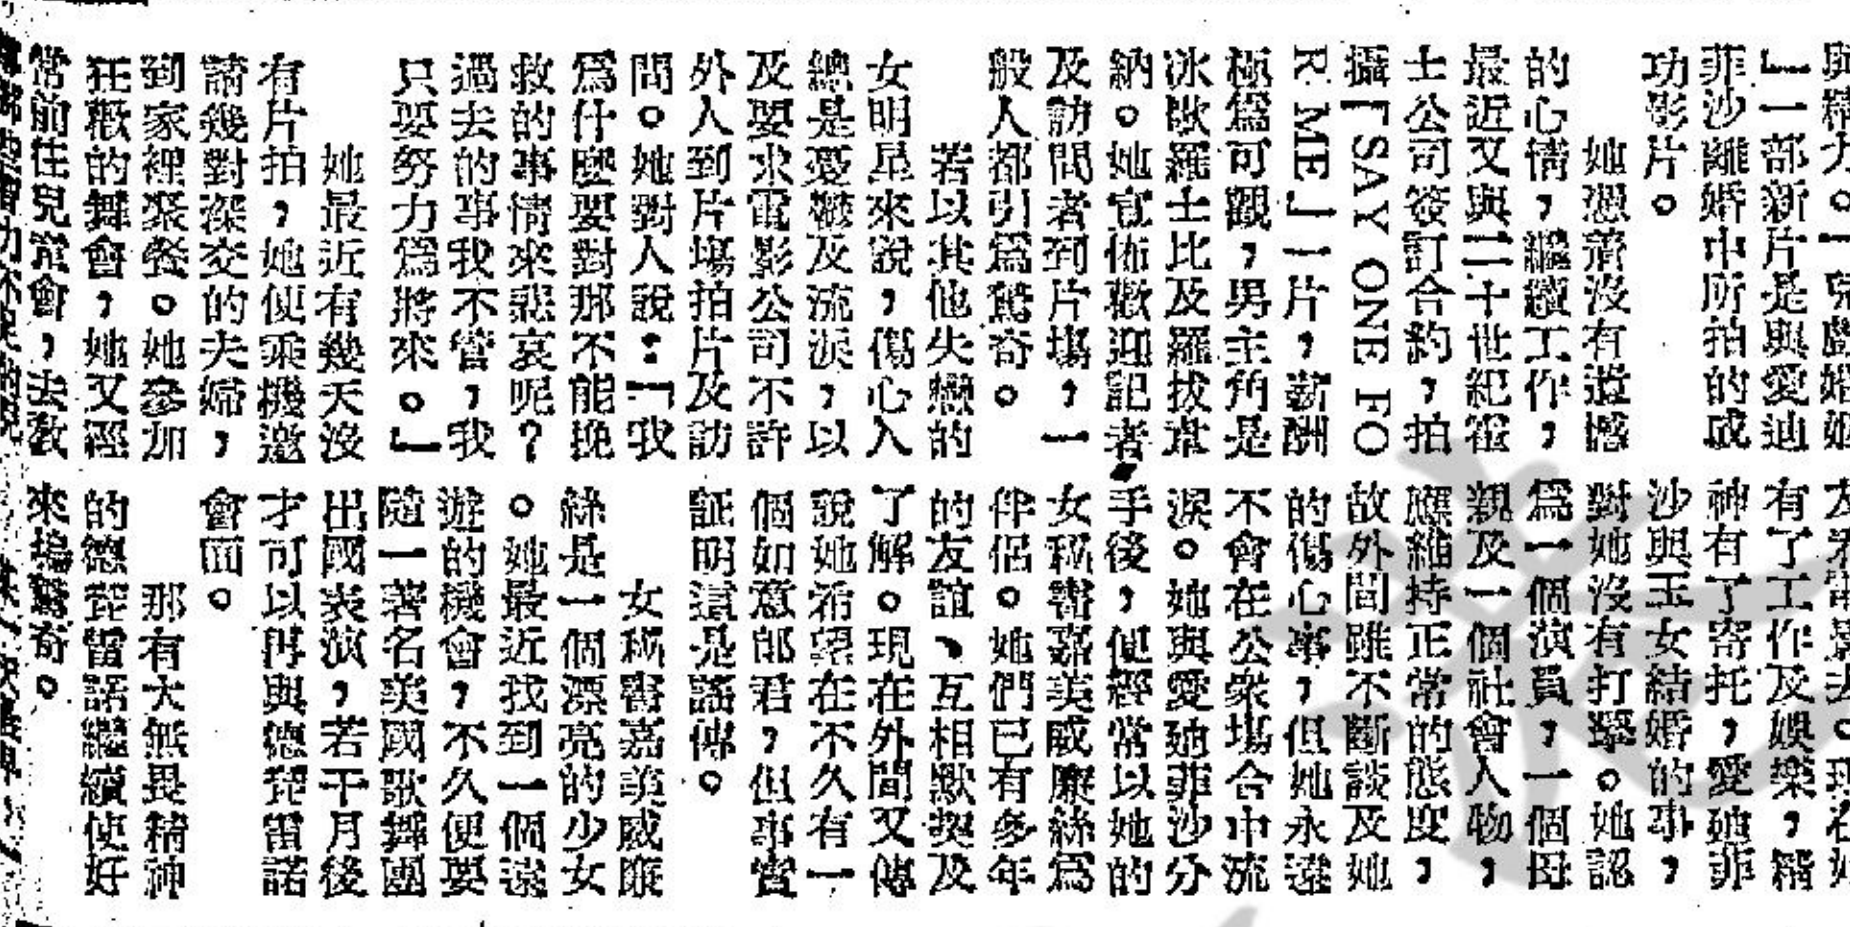 」一部新片是與愛迪
菲沙離婚中所拍的成
功影片。
她憑着沒有遺憾
的心情，繼續工作，
最近又與二十世紀霍
士公司簽訂合約，拍
攝「SAY ONE FO
R ME」一片，薪酬
極爲可觀，男主角是
冰歌羅士比及羅拔韋
納。她宣佈歡迎記者
及訪問者到片塲，一
般人都引爲驚奇。
若以其他失戀的
女明星來說，傷心人
總是憂鬱及流淚，以
及要求電影公司不許
外人到片塲拍片及訪
問。她對人說：「我
爲什麼要對那不能挽
救的事情來悲哀呢？
過去的事我不管，我
只要努力爲將來。」
她最近有幾天沒
有片拍，她便乘機邀
請幾對深交的夫婦，
到家裡聚餐。她參加
狂歡的舞會，她又經
常前往兒童會，去教
有了工作及娛樂，精
神有了寄托，愛迪菲
沙與玉女結婚的事，
對她沒有打擊。她認
爲一個演員，一個母
親及一個社會人物，
應維持正常的態度，
故外間雖不斷談及她
的傷心事，但她永遠
不會在公衆塲合中流
淚。她與愛迪菲沙分
手後，便經常以她的
女秘書嘉美威廉絲爲
伴侶。她們已有多年
的友誼、互相默契及
了解。現在外間又傳
說她希望在不久有一
個如意郎君，但事實
証明這是謠傳。
女秘書嘉美威廉
絲是一個漂亮的少女
。她最近找到一個遠
遊的機會，不久便要
隨一著名美國歌舞團
出國表演，若干月後
才可以再與德菩雷諾
會面。
那有大無畏精神
的德菩雷諾繼續使好
來塢驚奇。